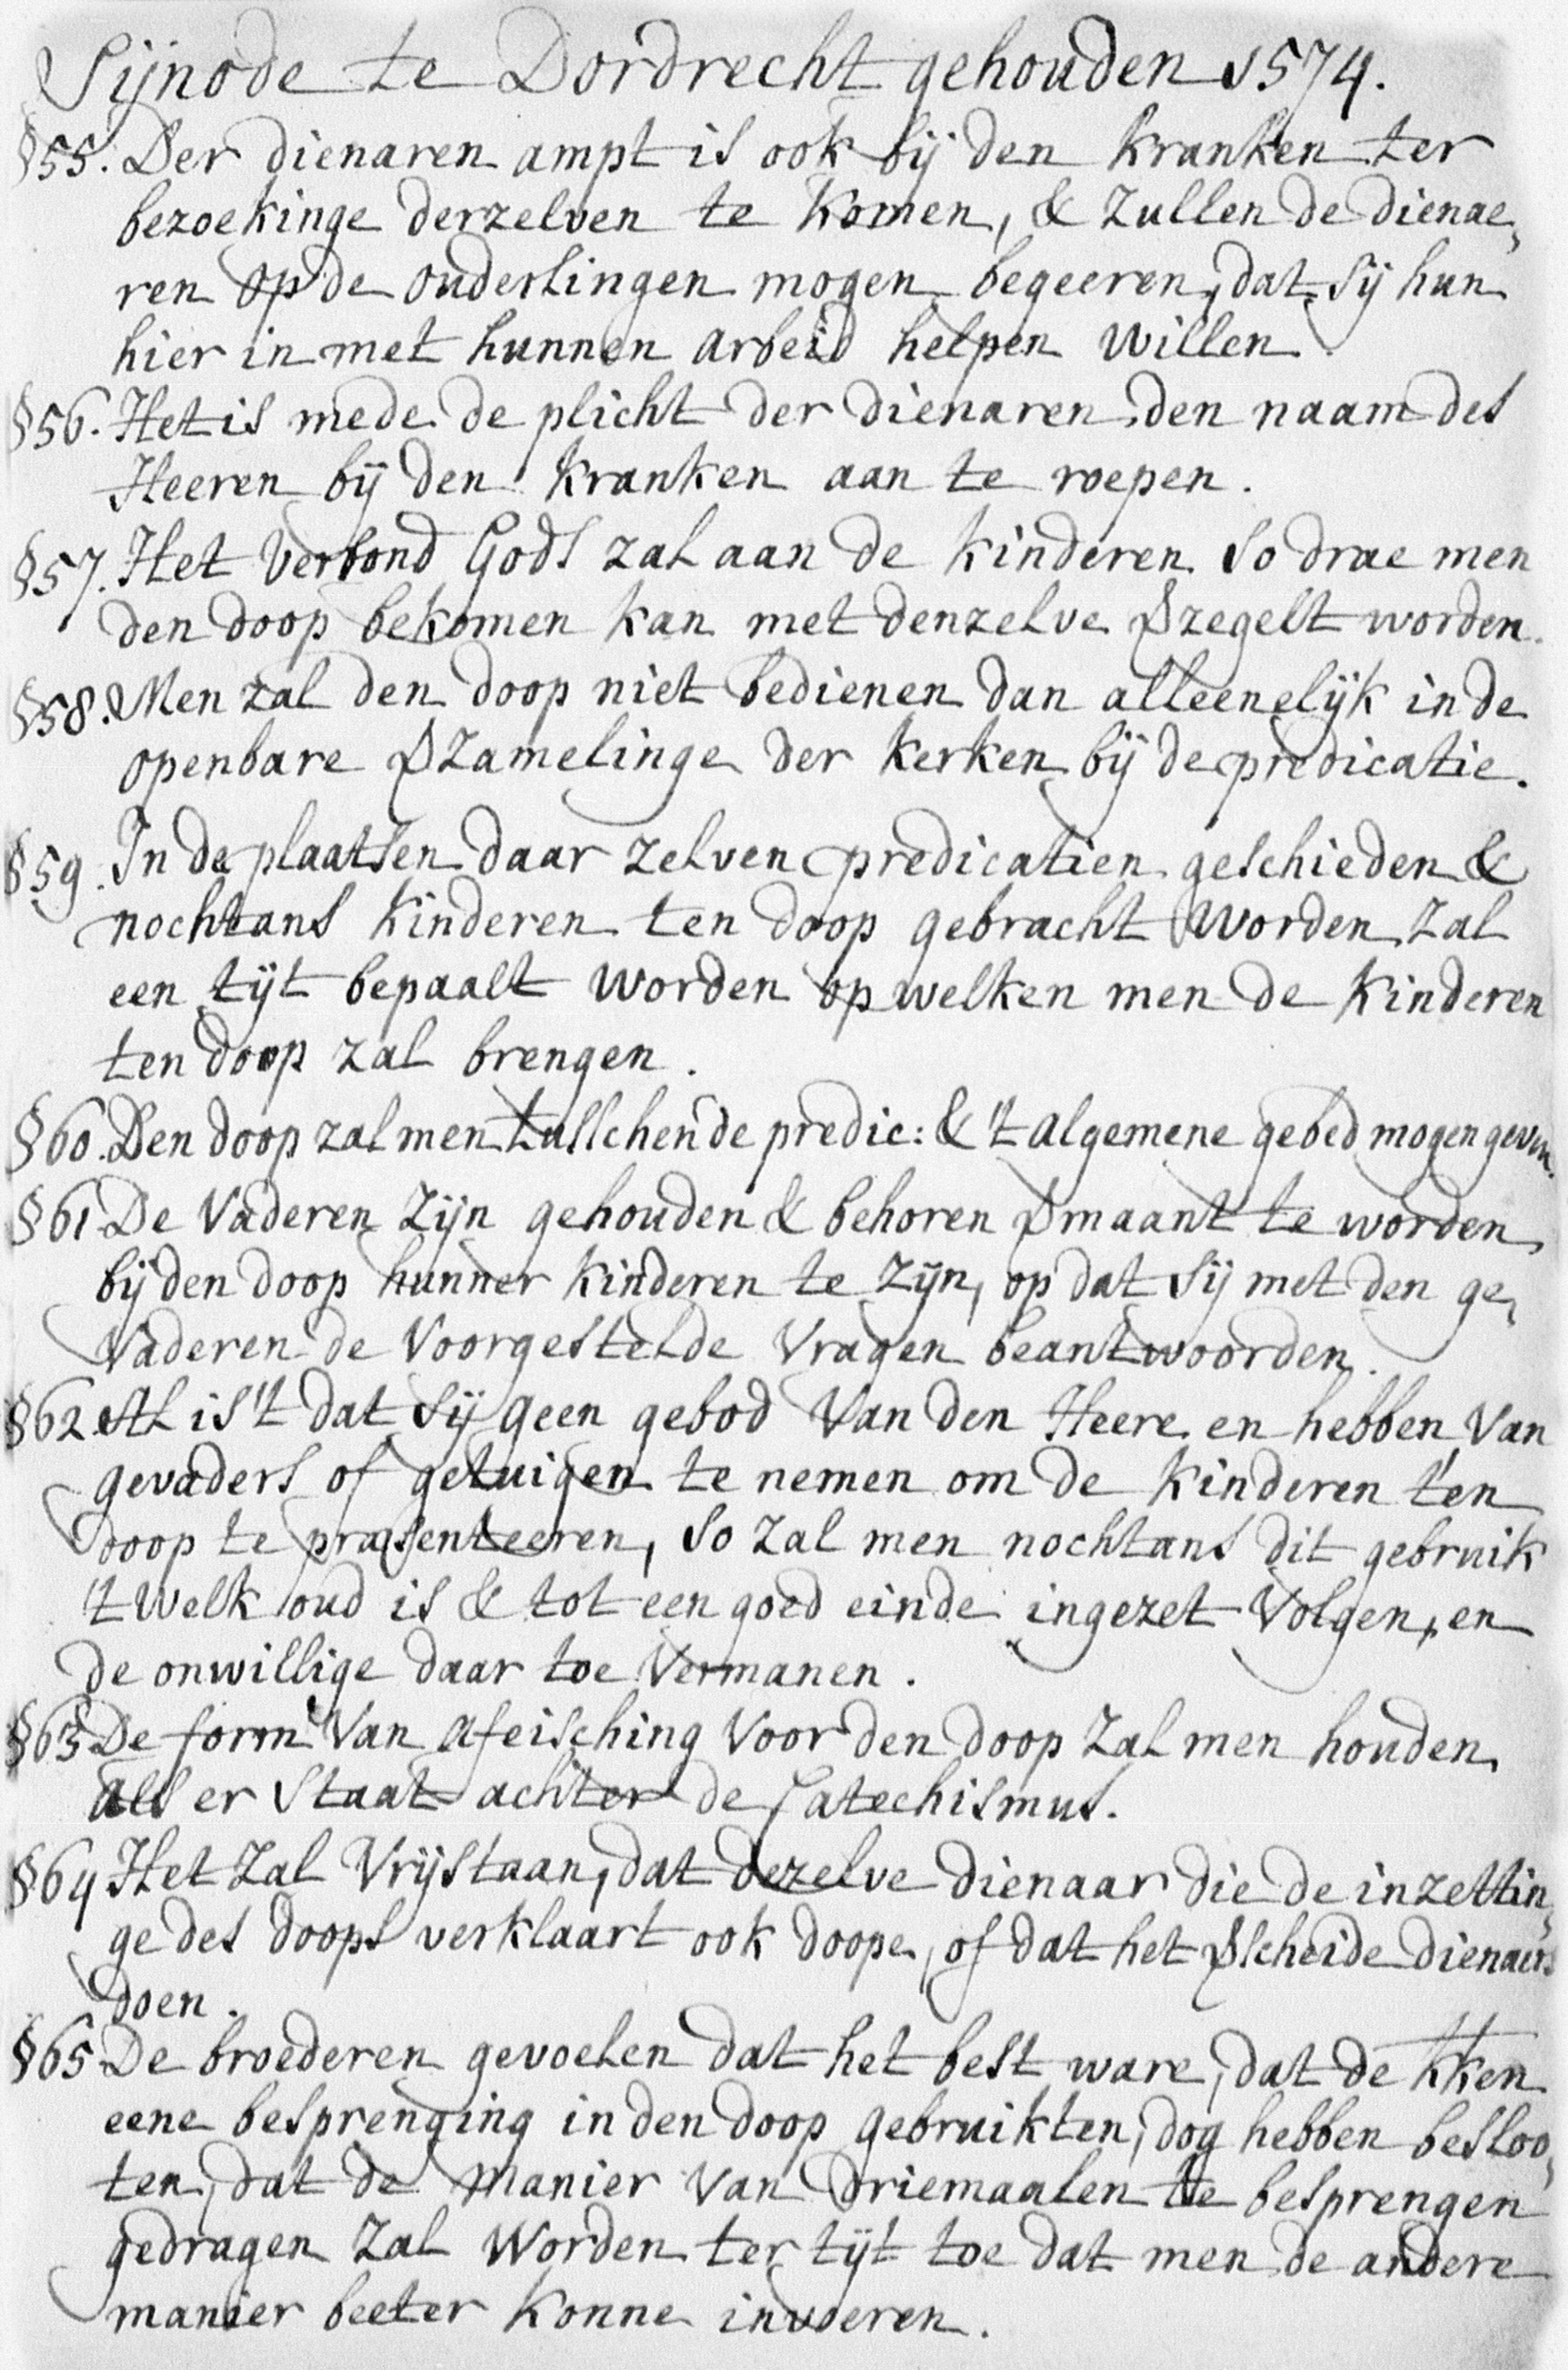 Sijnode te Dordrecht gehouden 1574.
§55. Der dienaren ampt is ook bij den kranken ter
bezoekinge derzelven te komen, & zullen de dienae,
ren op de ouderlingen mogen begeeren, dat sij hun
hier in met hunnen arbeid helpen willen.
§56. Het is mede de plicht der dienaren, den naam des
Heeren bij den kranken aan te roepen.
§57. Het Verbond Gods zal aan de kinderen so drae men
den doop bekomen kan met denzelve ꝟzegelt worden.
§58. Men zal den doop niet bedienen dan alleenelijk in de
openbare ꝟzamelinge der kerken bij de predicatie.
§59. In de plaatsen daar zelven predicatien geschieden &
nochtans kinderen ten doop gebracht worden, zal
een tijt bepaalt worden op welken men de kinderen
ten doop zal brengen.
§60. Den doop zal men tusschen de predic: & 't algemene gebed mogen geven.
§61 De Vaderen zijn gehouden & behoren ꝟmaant te worden,
bij den doop hunner kinderen te zijn, op dat sij met den ge,
vaderen de voorgestelde vragen beantwoorden.
§62 Al is't dat sij geen gebod van den Heere en hebben van
gevaders of getuigen te nemen om de kinderen ten
doop te præsenteeren, so zal men nochtans dit gebruik
't welk oud is & tot een goed einde ingezet volgen, en
de onwillige daar toe vermanen.
§63 De form van afeisching voor den doop zal men houden,
als er staat achter de Catechismus.
§64 Het zal vrijstaan, dat dezelve dienaar die de inzettin,
ge des doops verklaart ook doope, of dat het ꝟscheide dienaers
doen.
§65 De broederen gevoelen dat het best ware, dat de kken
eene besprenging in den doop gebruikten, dog hebben besloo,
ten, dat de manier van driemaalen te besprengen
gedragen zal worden ter tijt toe dat men de andere
manier beeter konne invoeren.